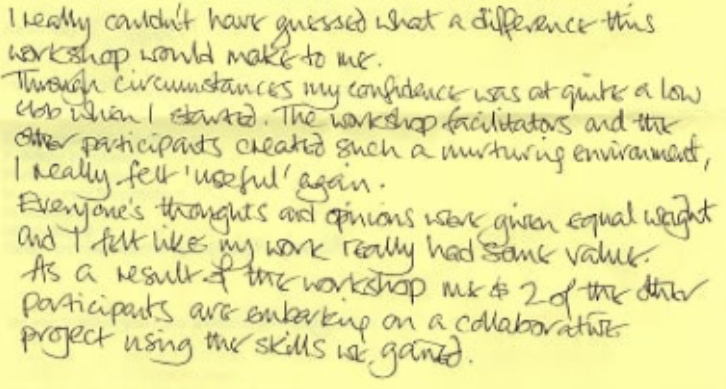 I really couldn't have guessed what a difference this
workshop would make to me.
Through circumstances my confidence was at quite a low
ebb when I started. The workshop facilitators and the
other participants created such a nurturing environment,
I really felt 'useful' again.
Everyone's thoughts and opinions were given equal weight
and I felt like my work really had some value.
As a result of the workshop me & 2 of the other
participants are embarking on a collaborative
project using the skills we gained.